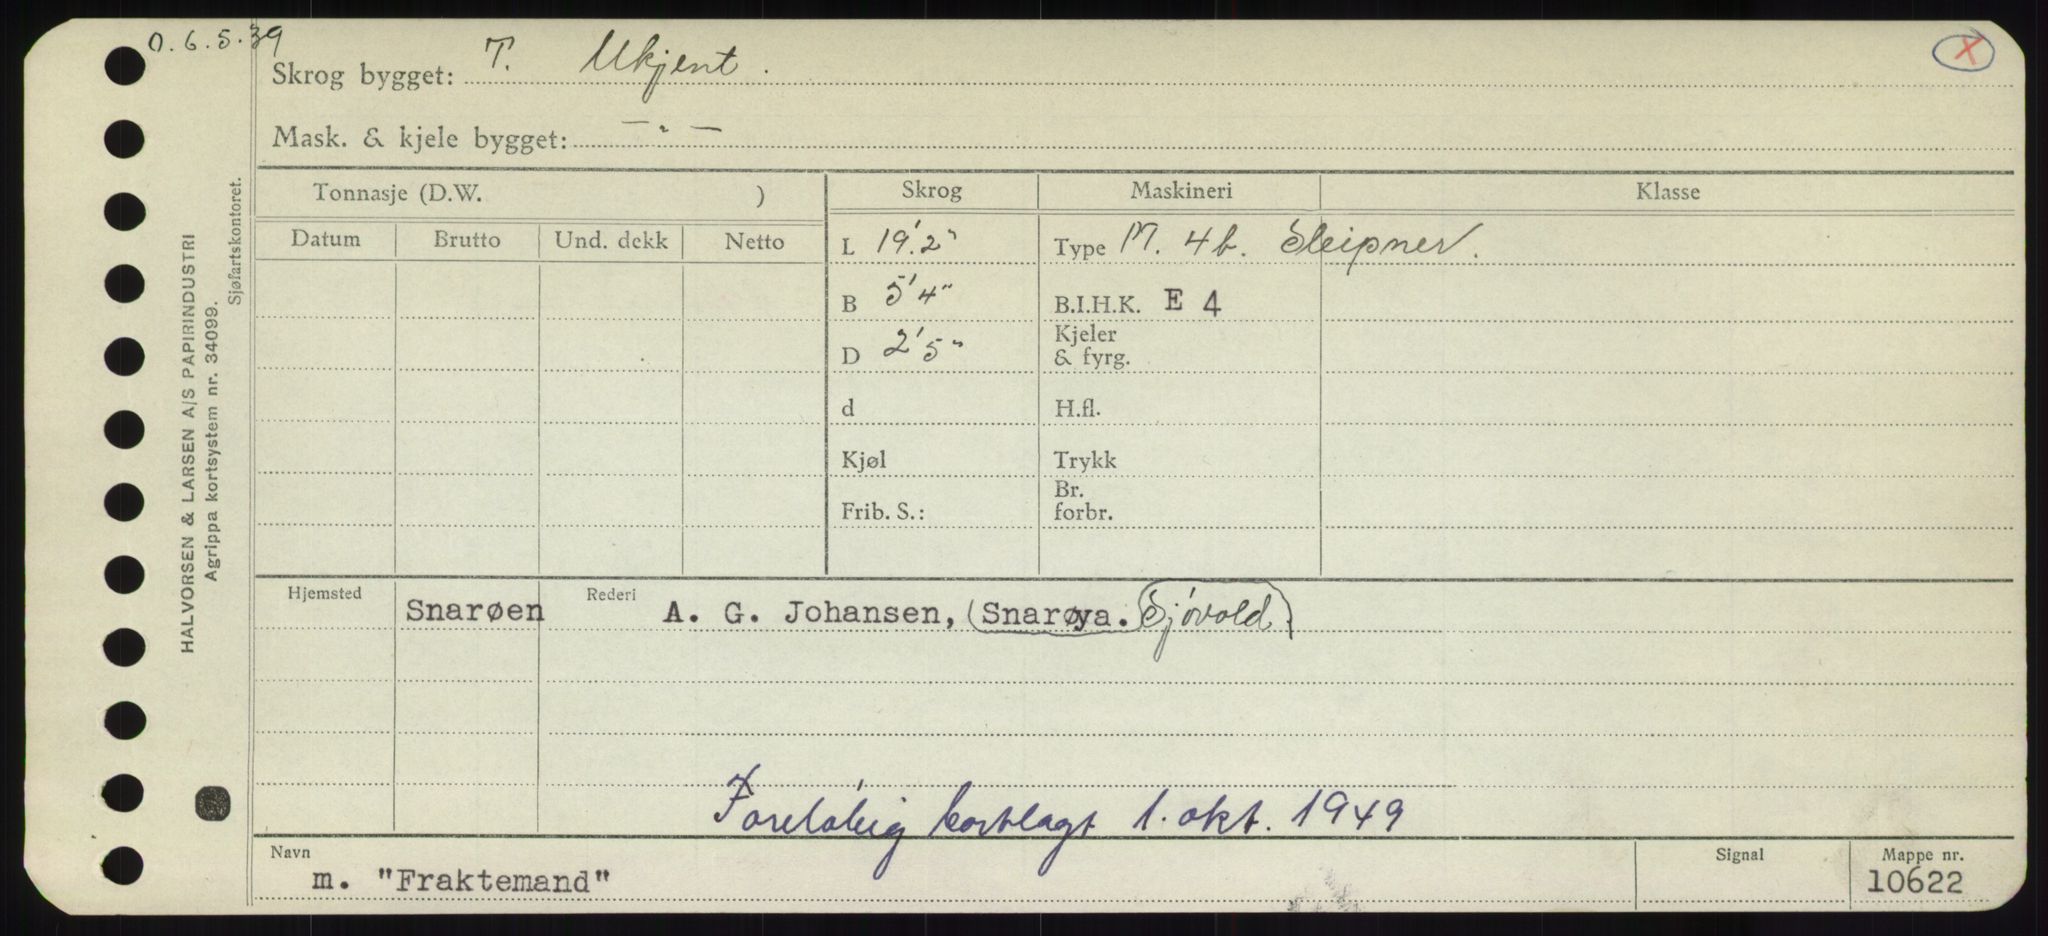 O. 6. 5. 39
Skrog bygget: T. Ukjent.
Mask. & kjele bygget: — " —
Tonnasje (D.W. ) Skrog Maskineri Klasse
Datum Brutto Und. dekk Netto
L 19'.2" Type M. 4 b. Sleipner.
B 5'4" B.I.H.K. E 4
D 2'5" Kjeler & fyrg.
d H.fl.
Kjøl Trykk
Frib. S.: Br. forbr.
Hjemsted Snarøen Rederi A. G. Johansen, (Snarøya. Sjøvold)
Foreløbig bortlagt 1. okt. 1949
Navn Signal Mappe nr.
m. "Fraktemand" 10622
HALVORSEN & LARSEN A/S PAPIRINDUSTRI
Agrippa kortsystem nr. 34099.
Sjøfartskontoret.
X